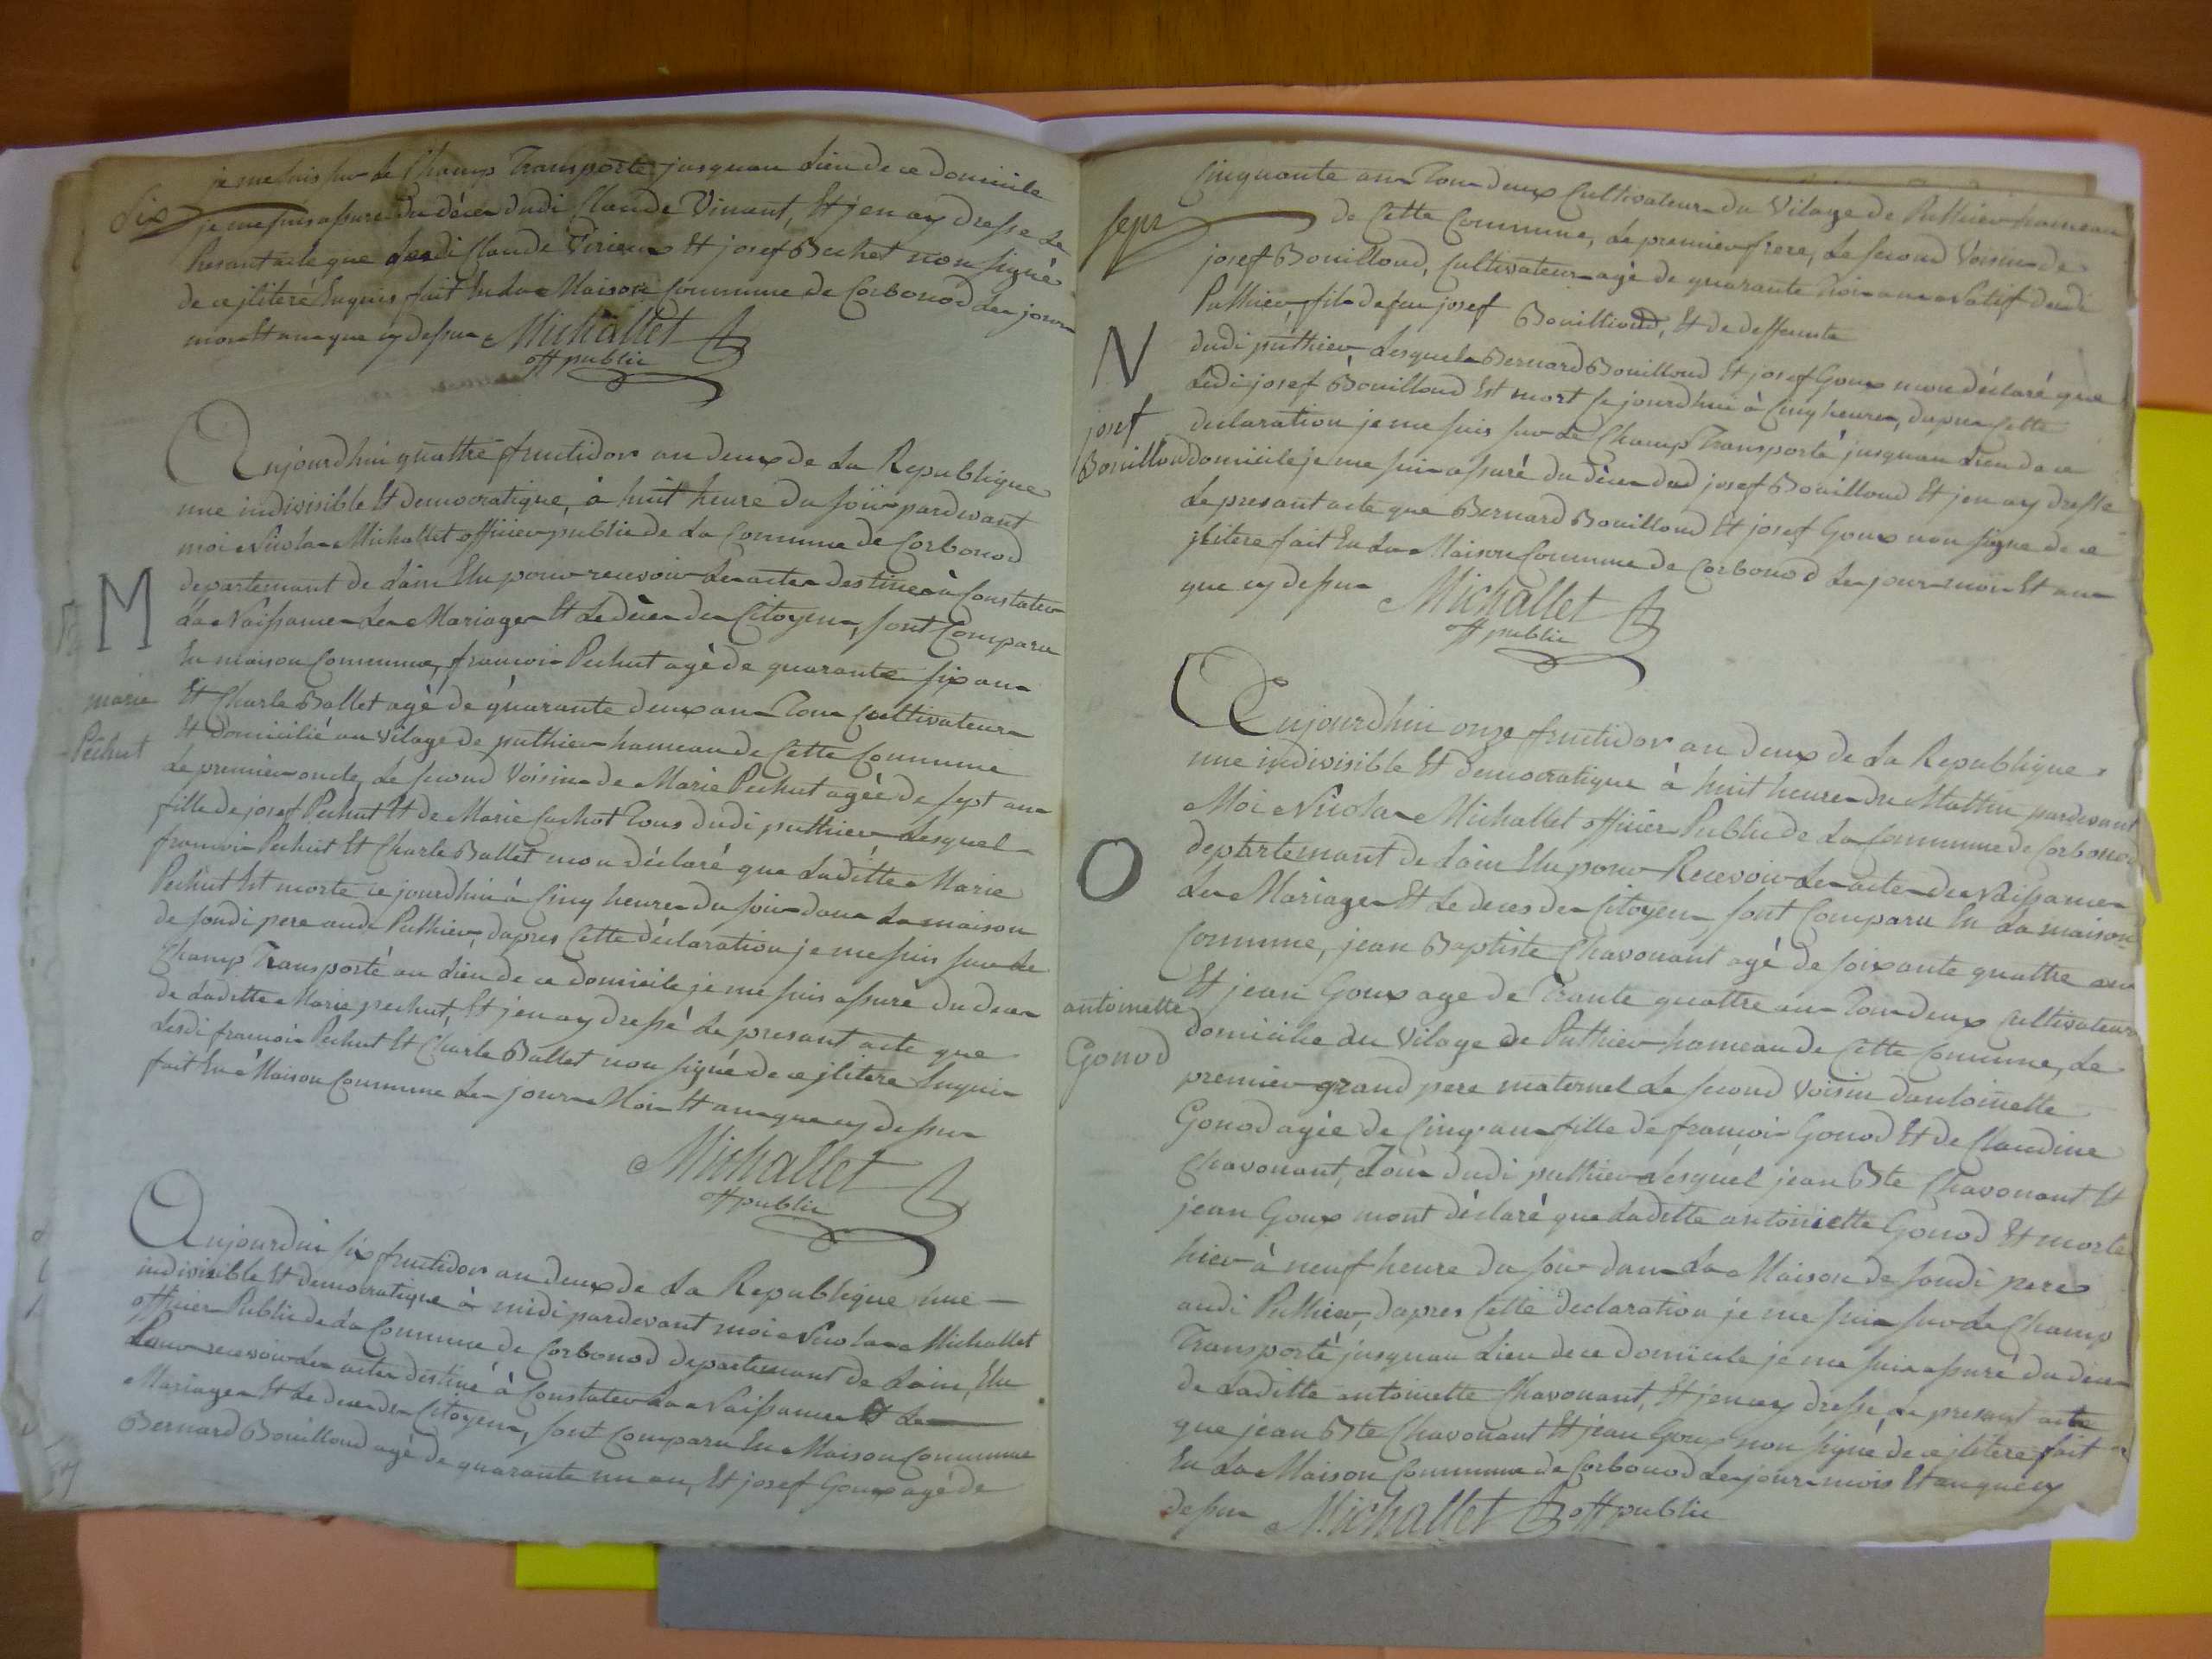 je me suis sur le Champ Transporté jusquau Lieu de ce domicile
Six
je me suis assuré du décer dudi Claude Vinant, Et jen ay dressé le
Presant acte que Claude Et josef Bechet non signé
de ce jlitéré Enquis fait En La Maison Commune de Corbonod Les jour
mois Et an que cy dessus Michallet
off public
Aujourdhui quattre fructidor an deux de La Republique
une indivisible Et democratique, à huit heure du soir pardevant
moi Nicolas Michallet officier public de La Commune de Corbonod
departemant de Lain Elu pour recevoir Les actes destiné à Constater
La Naissance Les Mariages Et Le décer des Citoyens, sont Comparu
M
En maison Commune, francois Pechut agé de quarante six ans
marie
Pechut
Et Charle Ballet agé de quarante deux ans Tous Cultivateurs
Et domicilié au vilage de puthier hameau de Cette Commune
Le premier oncle, Le second Voisin de Marie Pechut agée de sept ans
fille de josef Pechut Et de Marie Cachot Tous dudi puthier Lesquels
francois Pechut Et Charle Ballet mon déclaré que Laditte Marie
Pechut Est morte ce jourdhui à Cinq heures du soir dans La maison
de sondi pere audi Puthier, dapres Cette déclaration je me suis sur Le
Champ Transporté au Lieu de ce domicile je me suis assuré du deces
de Laditte Marie pechut, Et jen ay dressé Le presant acte que
Lesdi francois Pechut Et Charle Ballet non signé de ce jlitere Enquis
fait En Maison Commune Les jour Mois Et an que cy dessus
Michallet
off public
Aujourdui six fructidor an deux de La Republique une
indivisible Et democratique à midi pardevant moi Nicolas Michallet
officier Public de La Commune de Corbonod departemant de Lain, Elu
Pour recevoir Les actes destiné à Constater La Naissance Et Les
Mariages Et Le deces des Citoyens, sont Comparu En Maison Commune
Bernard Bouilloud agé de quarante un an, Et josef Goux agé de
Cinquante ans Tous deux Cultivateurs du Vilage de Puthier hameau
sept
de Cette Commune, Le premier frere, Le second Voisin de
josef Bouilloud, Cultivateur agé de quarante Trois ans Natif dudi
Puthier, fils de feu josef Bouilloud, Et de deffeunte
N
josef
Bouilloud
dudi puthier, Lesquels Bernard Bouilloud Et josef Goux mon déclaré que
Ledi josef Bouilloud Est mort ce jourdhui à Cinq heures, dapres Cette
declaration je me suis sur Le Champ Transporté jusquau Lieu de ce
domicile je me suis assuré du déces dud josef Bouilloud Et jen ay dressé
Le presant acte que Bernard Bouilloud Et josef Goux non signe de ce
jlitere fait En La Maison Commune de Corbonod Les jour mois Et an
que cy dessus Michallet
off public
Aujourdhui onze fructidor an deux de La Republique
une indivisible Et democratique à huit heures du Mattin pardevant
Moi Nicolas Michallet officier Public de La Commune de Corbonod
O
departemant de Lain Elu pour Recevoir Les actes des Naissances
Les Mariages Et Le deces des Citoyens sont Comparu En La maison
Commune, jean Baptiste Chavonant agé de soixante quattre ans
antoinette
Gonod
Et jean Goux age de Trante quattre ans Tous deux Cultivateurs
domicilie du Vilage de Puthier hameau de Cette Commune, Le
premier grand pere maternel Le second Voisin dantoinette
Gonod agée de Cinq ans fille de francois Gonod Et de Claudine
Chavonant, Tous dudi puthier Lesquel jean Bte Chavonant Et
jean Goux mont déclaré que Laditte antoinette Gonod Et morte
hier à neuf heure du soir dans La Maison de sondi pere
audi Puthier, dapres Cette declaration je me suis sur Le Champ
Transporté jusquau Lieu de ce domicile je me suis assuré du deces
de Laditte antoinette Chavonant, Et jen ay dresse Le presant acte
que jean Bte Chavonant Et jean Goux non signé de ce jlitere fait
En La Maison Commune de Corbonod Les jour mois Et an que cy
dessus Michallet off public